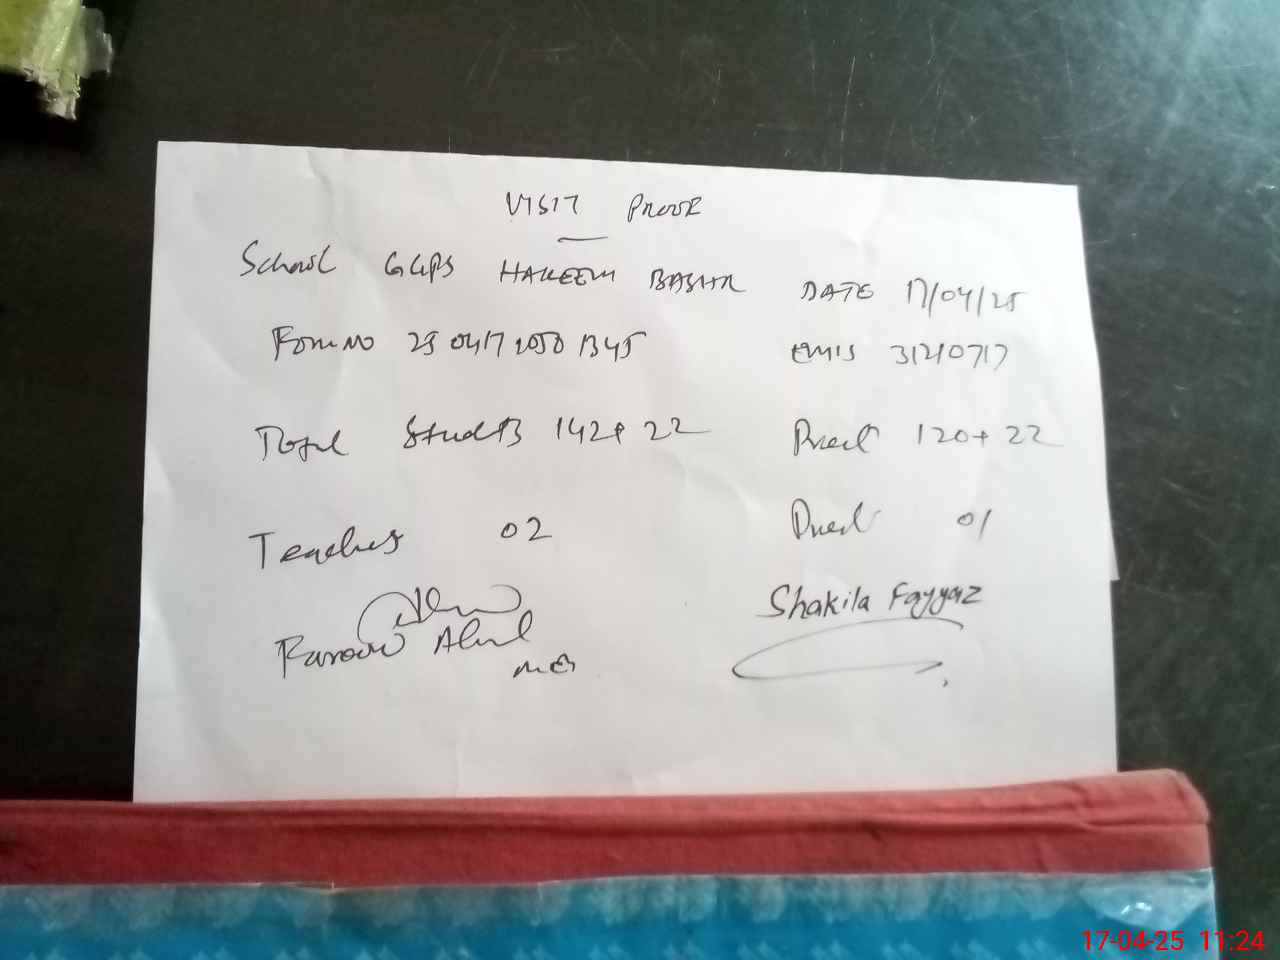 VISIT PROOF
School GGPS HAKEEM BASHIR DATE 17/04/25
Form No 25 0417 1050 1345 EMIS 31210717
Total Students 142+22 Present 120+22
Teachers 02 Present 01
Shakila Fayyaz
MEA
17-04-25 11:24